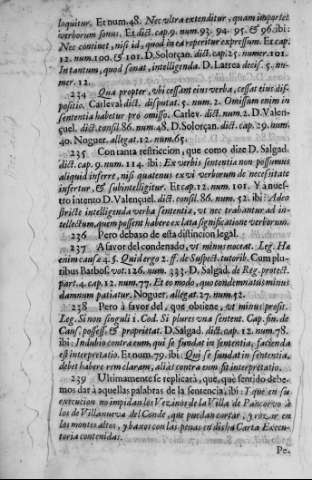 loquitur. Et num. 48. Nec ultra extenditur, quam importet
verborum sonus. Et dict. cap. 9. num. 93. 94. 95. & 96. ibi:
Nec continet, nisi id, quod in ea reperitur expressum. Et cap.
12. num. 100. & 101. D. Solorçan. dict. cap. 25. numer. 101.
In tantum, quod sonat, intelligenda. D. Larrea decis. 5. nu-
mer. 12.
234 Qua propter, vbi cessant eius verba, cessat eius dis-
positio. Carleval dict. disputat. 5. num. 2. Omissum enim in
sententia habetur pro omisso. Carlev. dict. num. 2. D. Valen-
çuel. dict. consil. 86. num. 48. D. Solorçan. dict. cap. 29. num.
40. Noguer. allegat. 12. num. 65.
235 Con tanta restriccion, que como dize D. Salgad.
dict. cap. 9. num. 114. ibi: Ex verbis sententia non possumus
aliquid inferre, nisi quatenus ex vi verborum de necessitate
infertur, & subintelligitur. Et cap. 12. num. 101. Y à nues-
tro intento D. Valençuel. dict. consil. 86. num. 52. ibi: Adeo
stricte intelligenda verba sententia, vt nec trabantur ad in-
tellectum, quem possent habere ex lata significatione verborum.
236 Pero debaxo de esta distincion legal.
237 A favor del condenado, vt minus noceat. Leg. Ha
enim causæ 4. §. Quid ergo 2. ff. de Suspect. tutorib. Cum plu-
ribus Barbos. vot. 126. num. 333. D. Salgad. de Reg. protect.
part. 4. cap. 12. num. 77. Et eo modo, quo condemnatus minus
damnum patiatur, Noguer. allegat. 27. num. 52.
238 Pero à favor del, que obtiene, vt minus prosit.
Leg. Si non singuli 1. Cod. Si plures vna sentent. Cap. fin. de
Caus. possess. & proprietat. D. Salgad. dict. cap. 12. num. 78.
ibi: In dubio contra eum, qui se fundat in sententia, facienda
est interpretatio. Et num. 79. ibi: Qui se fundat in sententia,
debet habere rem claram, aliàs contra eum fit interpretatio.
239 Ultimamente se replicarà, que, què sentido debe-
mos dàr à aquellas palabras de la sentencia, ibi: Y que en su
execucion no impidan los Vezinos de la Villa de Pancorvo à
los de Villanueva del Conde, que puedan cortar, y rozar en
los montes altos, y baxos con las penas en dicha Carta Execu-
toria contenidas.
Pe-